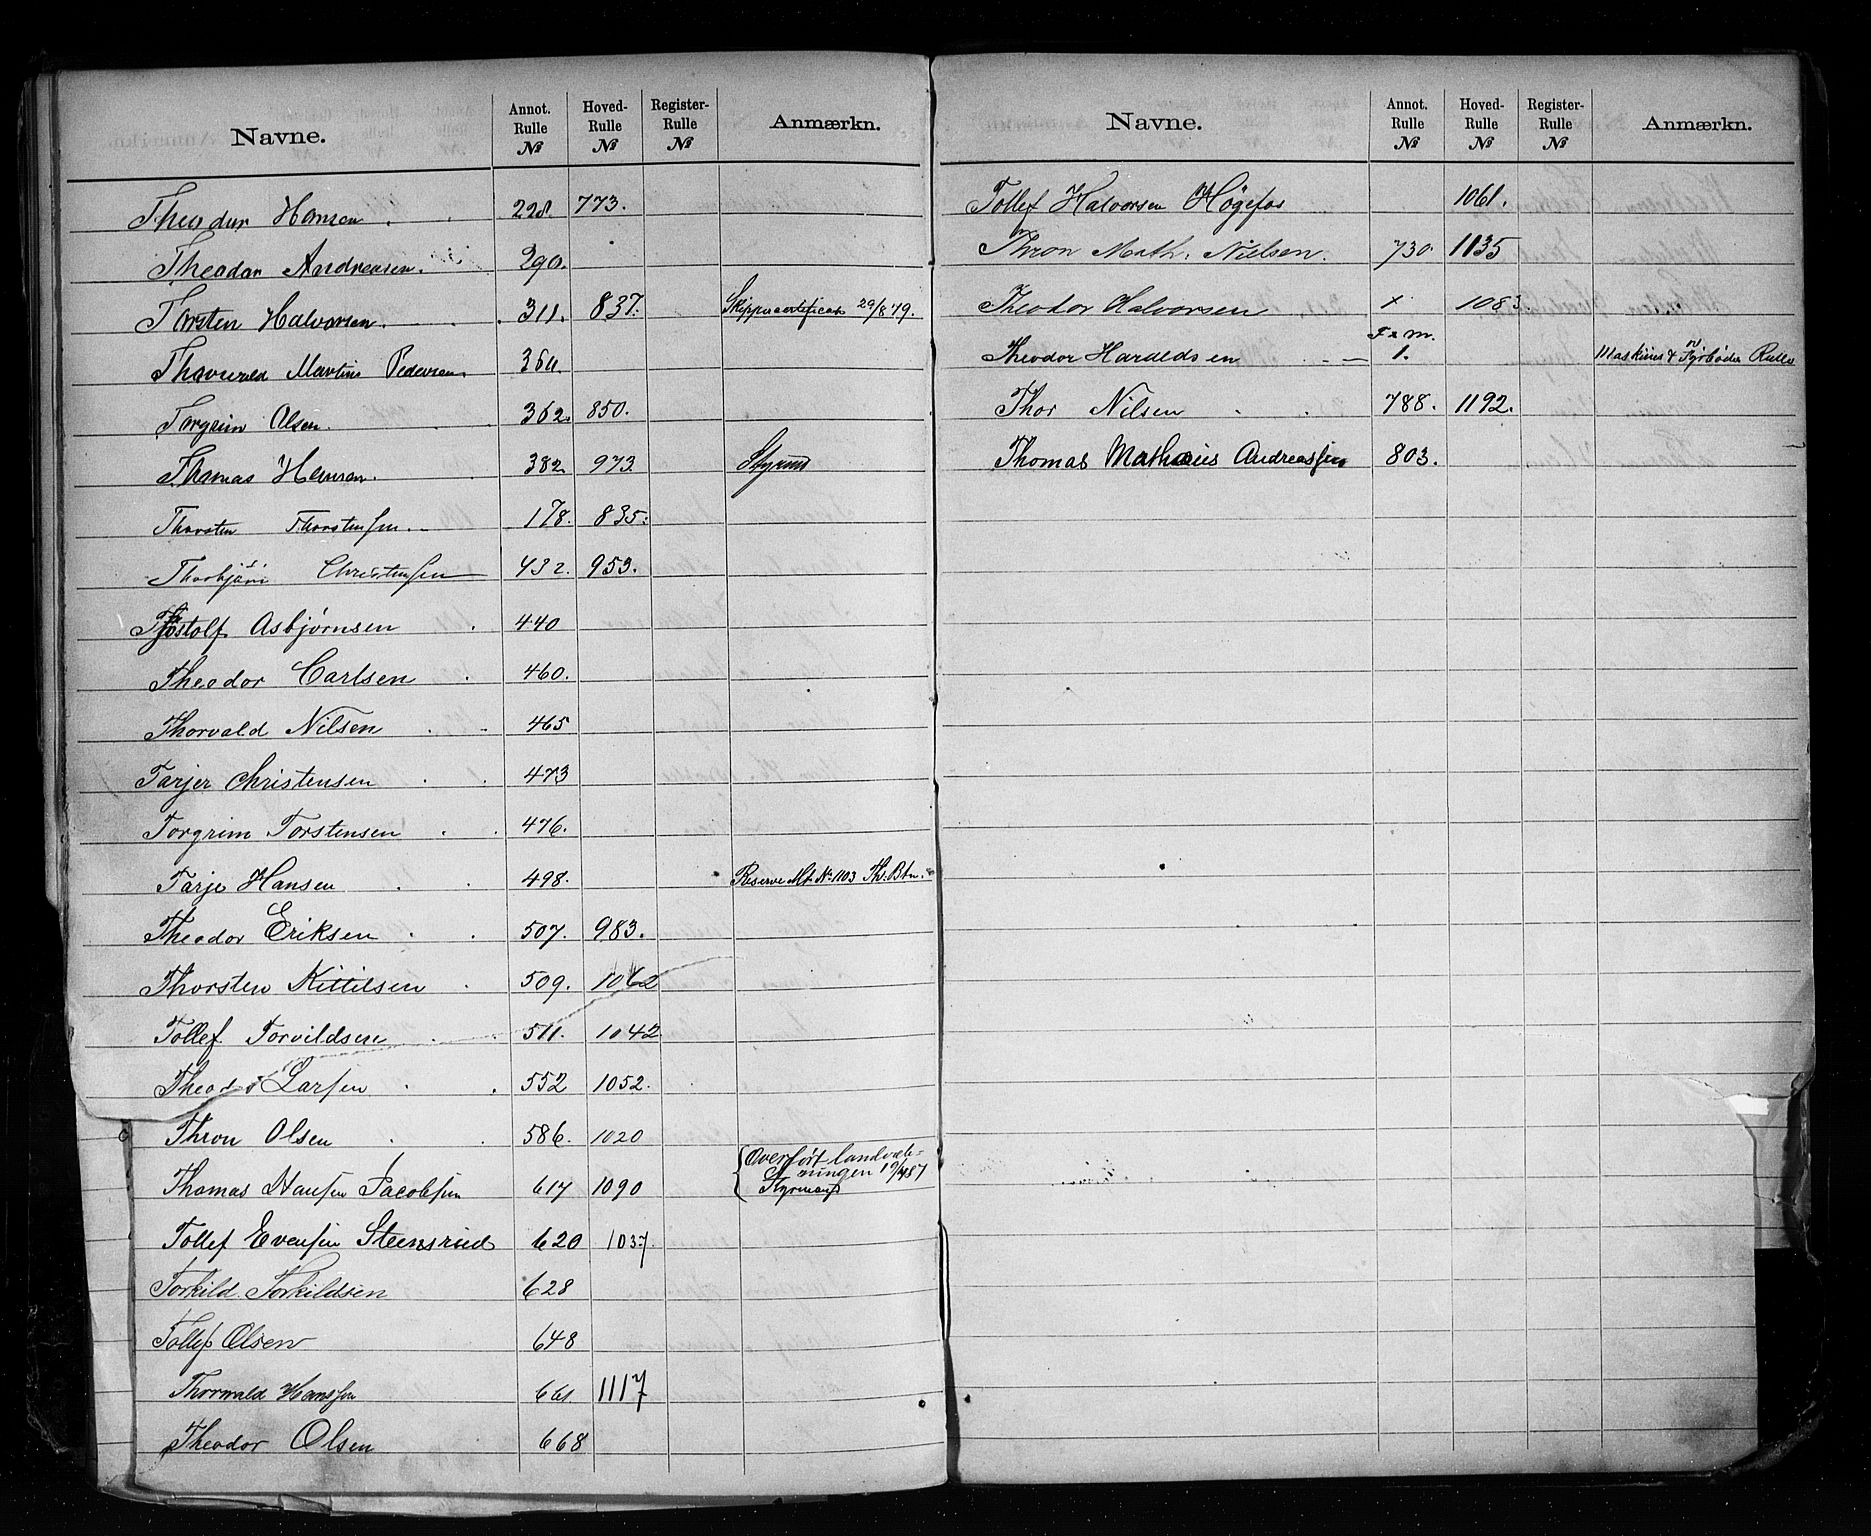 Navne. Annot. Rulle № Hoved-Rulle № Register-Rulle № Anmærkn.
Theodor Hansen 228. 773.
Theodor Andreasen. 290.
Torsten Halvorsen. 311. 837. 29/8 79.
Thorvald Martin Pedersen 360.
Torgrim Olsen. 362. 850.
Thomas Hansen. 382. 973
Thorsten Thorstensen. 178. 835.
Thorbjörn Christensen 432. 953.
Tjostolf Asbjørnsen 440
Theodor Carlsen 460.
Thorvald Nilsen 465
Tarjer Christensen 473
Torgrim Torstensen 476.
Tarje Hansen 498. Reserve Mt. № 1103 Th. Btn.
Theodor Eriksen 507. 983.
Thorsten Kittilsen 509. 1062
Tollef Torvildsen 511. 1042
Theodor Larsen 552 1052.
Thron Olsen 586. 1020
Thomas Hansen Jacobsen 617 1090 Overført landvæ-
Styrmand
Tollef Evensen Steensrud 620 1037.
Torkild Torkildsen 628
Tollef Olsen 648
Thorwald Hanssen 661 1117
Theodor Olsen 668
Navne. Annot. Rulle № Hoved-Rulle № Register-Rulle № Anmærkn.
Tollef Halvorsen Høgefos 1061.
Thron Math. Nielsen. 730. 1135
Theodor Halvorsen x 1083
F & M.
Theodor Haraldsen 1. Maskinist & Fyrbøder Rulle
Thor Nilsen 788. 1192.
Thomas Mathæus Andreassen 803.